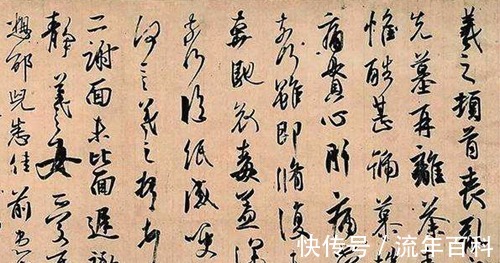 羲之頓首喪亂
先墓再離荼
惟酷甚號慕摧
痛貫心肝痛
奈何雖即脩復
奔馳哀毒益深
奈何臨紙感哽
何言羲之頓首
二謝面未比面遲詠
靜羲之女愛再
想邵兒悉佳前患
快传号／流年百科